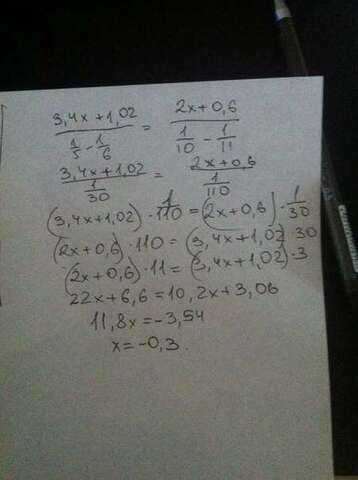 (3,4x+1,02)/(1/5 - 1/6) = (2x+0,6)/(1/10 - 1/11)
(3,4x+1,02)/(1/30) = (2x+0,6)/(1/110)
(3,4x+1,02) · 1/110 = (2x+0,6) · 1/30
(2x+0,6) · 110 = (3,4x+1,02) · 30
(2x+0,6) · 11 = (3,4x+1,02) · 3
22x+6,6=10,2x+3,06
11,8x=-3,54
x=-0,3.